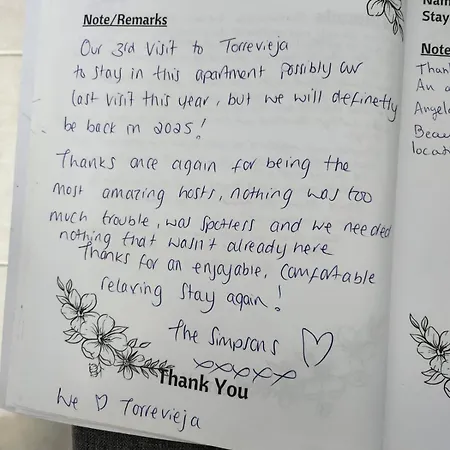 Note/Remarks
Our 3rd visit to Torrevieja
to stay in this apartment possibly our
last visit this year, but we will definetly
be back in 2025!
Thanks once again for being the
most amazing hosts, nothing was too
much trouble, was spotless and we needed
nothing that wasn't already here
Thanks for an enjoyable, comfortable
relaxing stay again!
The Simpsons ♡
xxxxx
Thank You
We ♡ Torrevieja
Stay
Note
An a